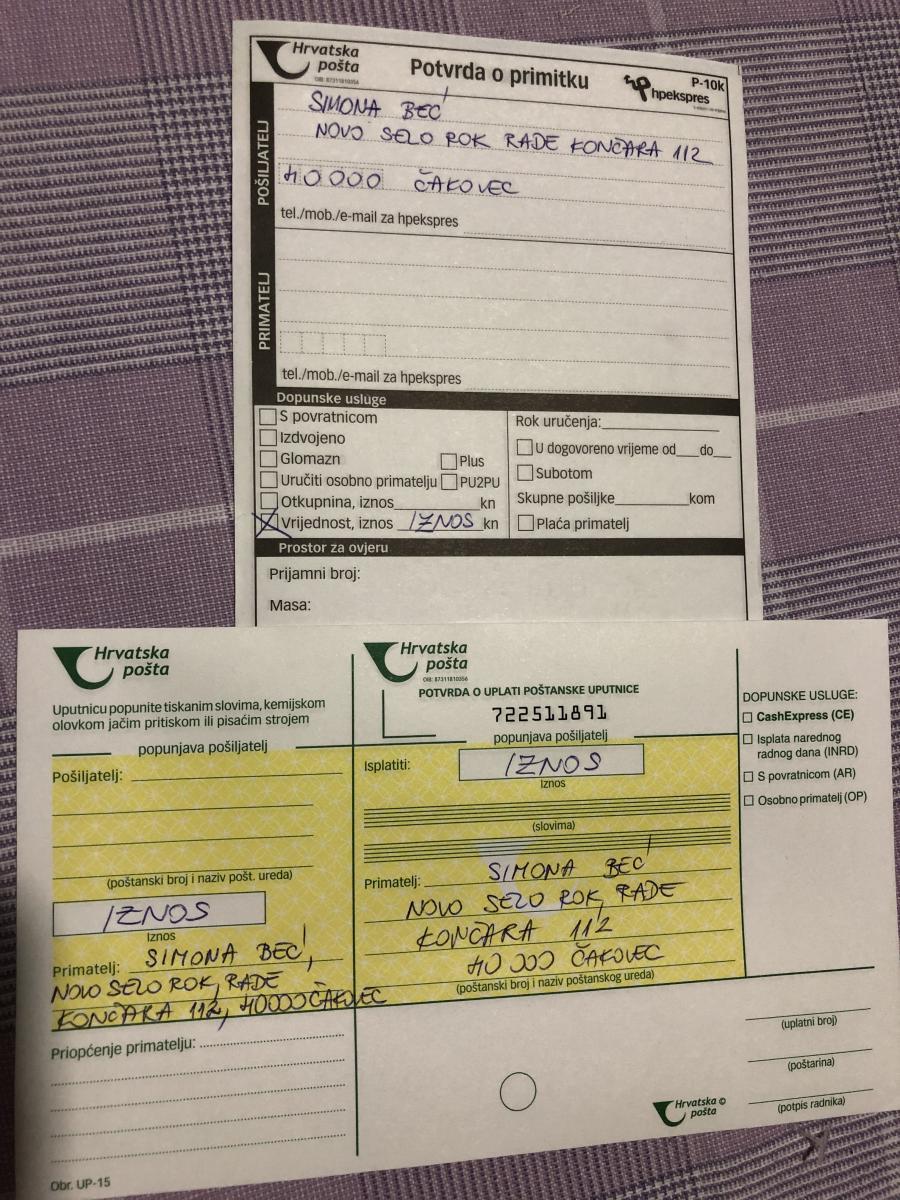 Hrvatska
pošta
OIB: 87311810356
Potvrda o primitku
hpekspres
P-10k
POŠILJATELJ
SIMONA BEĆ
NOVO SELO ROK RADE KONČARA 112
40000 ČAKOVEC
tel./mob./e-mail za hpekspres
PRIMATELJ
tel./mob./e-mail za hpekspres
Dopunske usluge
S povratnicom
Izdvojeno
Glomazn
Plus
Uručiti osobno primatelju
PU2PU
Otkupnina, iznos kn
Vrijednost, iznos IZNOS kn
Rok uručenja:
U dogovoreno vrijeme od do
Subotom
Skupne pošiljke kom
Plaća primatelj
Prostor za ovjeru
Prijamni broj:
Masa:
Hrvatska
pošta
Uputnicu popunite tiskanim slovima, kemijskom
olovkom jačim pritiskom ili pisaćim strojem
popunjava pošiljatelj
Pošiljatelj:
(poštanski broj i naziv pošt. ureda)
IZNOS
Iznos
Primatelj: SIMONA BEĆ,
NOVO SELO ROK, RADE
KONČARA 112, 40000 ČAKOVEC
Priopćenje primatelju:
Obr. UP-15
Hrvatska
pošta
OIB: 87311810356
POTVRDA O UPLATI POŠTANSKE UPUTNICE
722511891
popunjava pošiljatelj
Isplatiti: IZNOS
Iznos
(slovima)
Primatelj: SIMONA BEĆ
NOVO SELO ROK, RADE
KONČARA 112
40 000 ČAKOVEC
(poštanski broj i naziv poštanskog ureda)
DOPUNSKE USLUGE:
CashExpress (CE)
Isplata narednog
radnog dana (INRD)
S povratnicom (AR)
Osobno primatelj (OP)
(uplatni broj)
(poštarina)
(potpis radnika)
Hrvatska ©
pošta